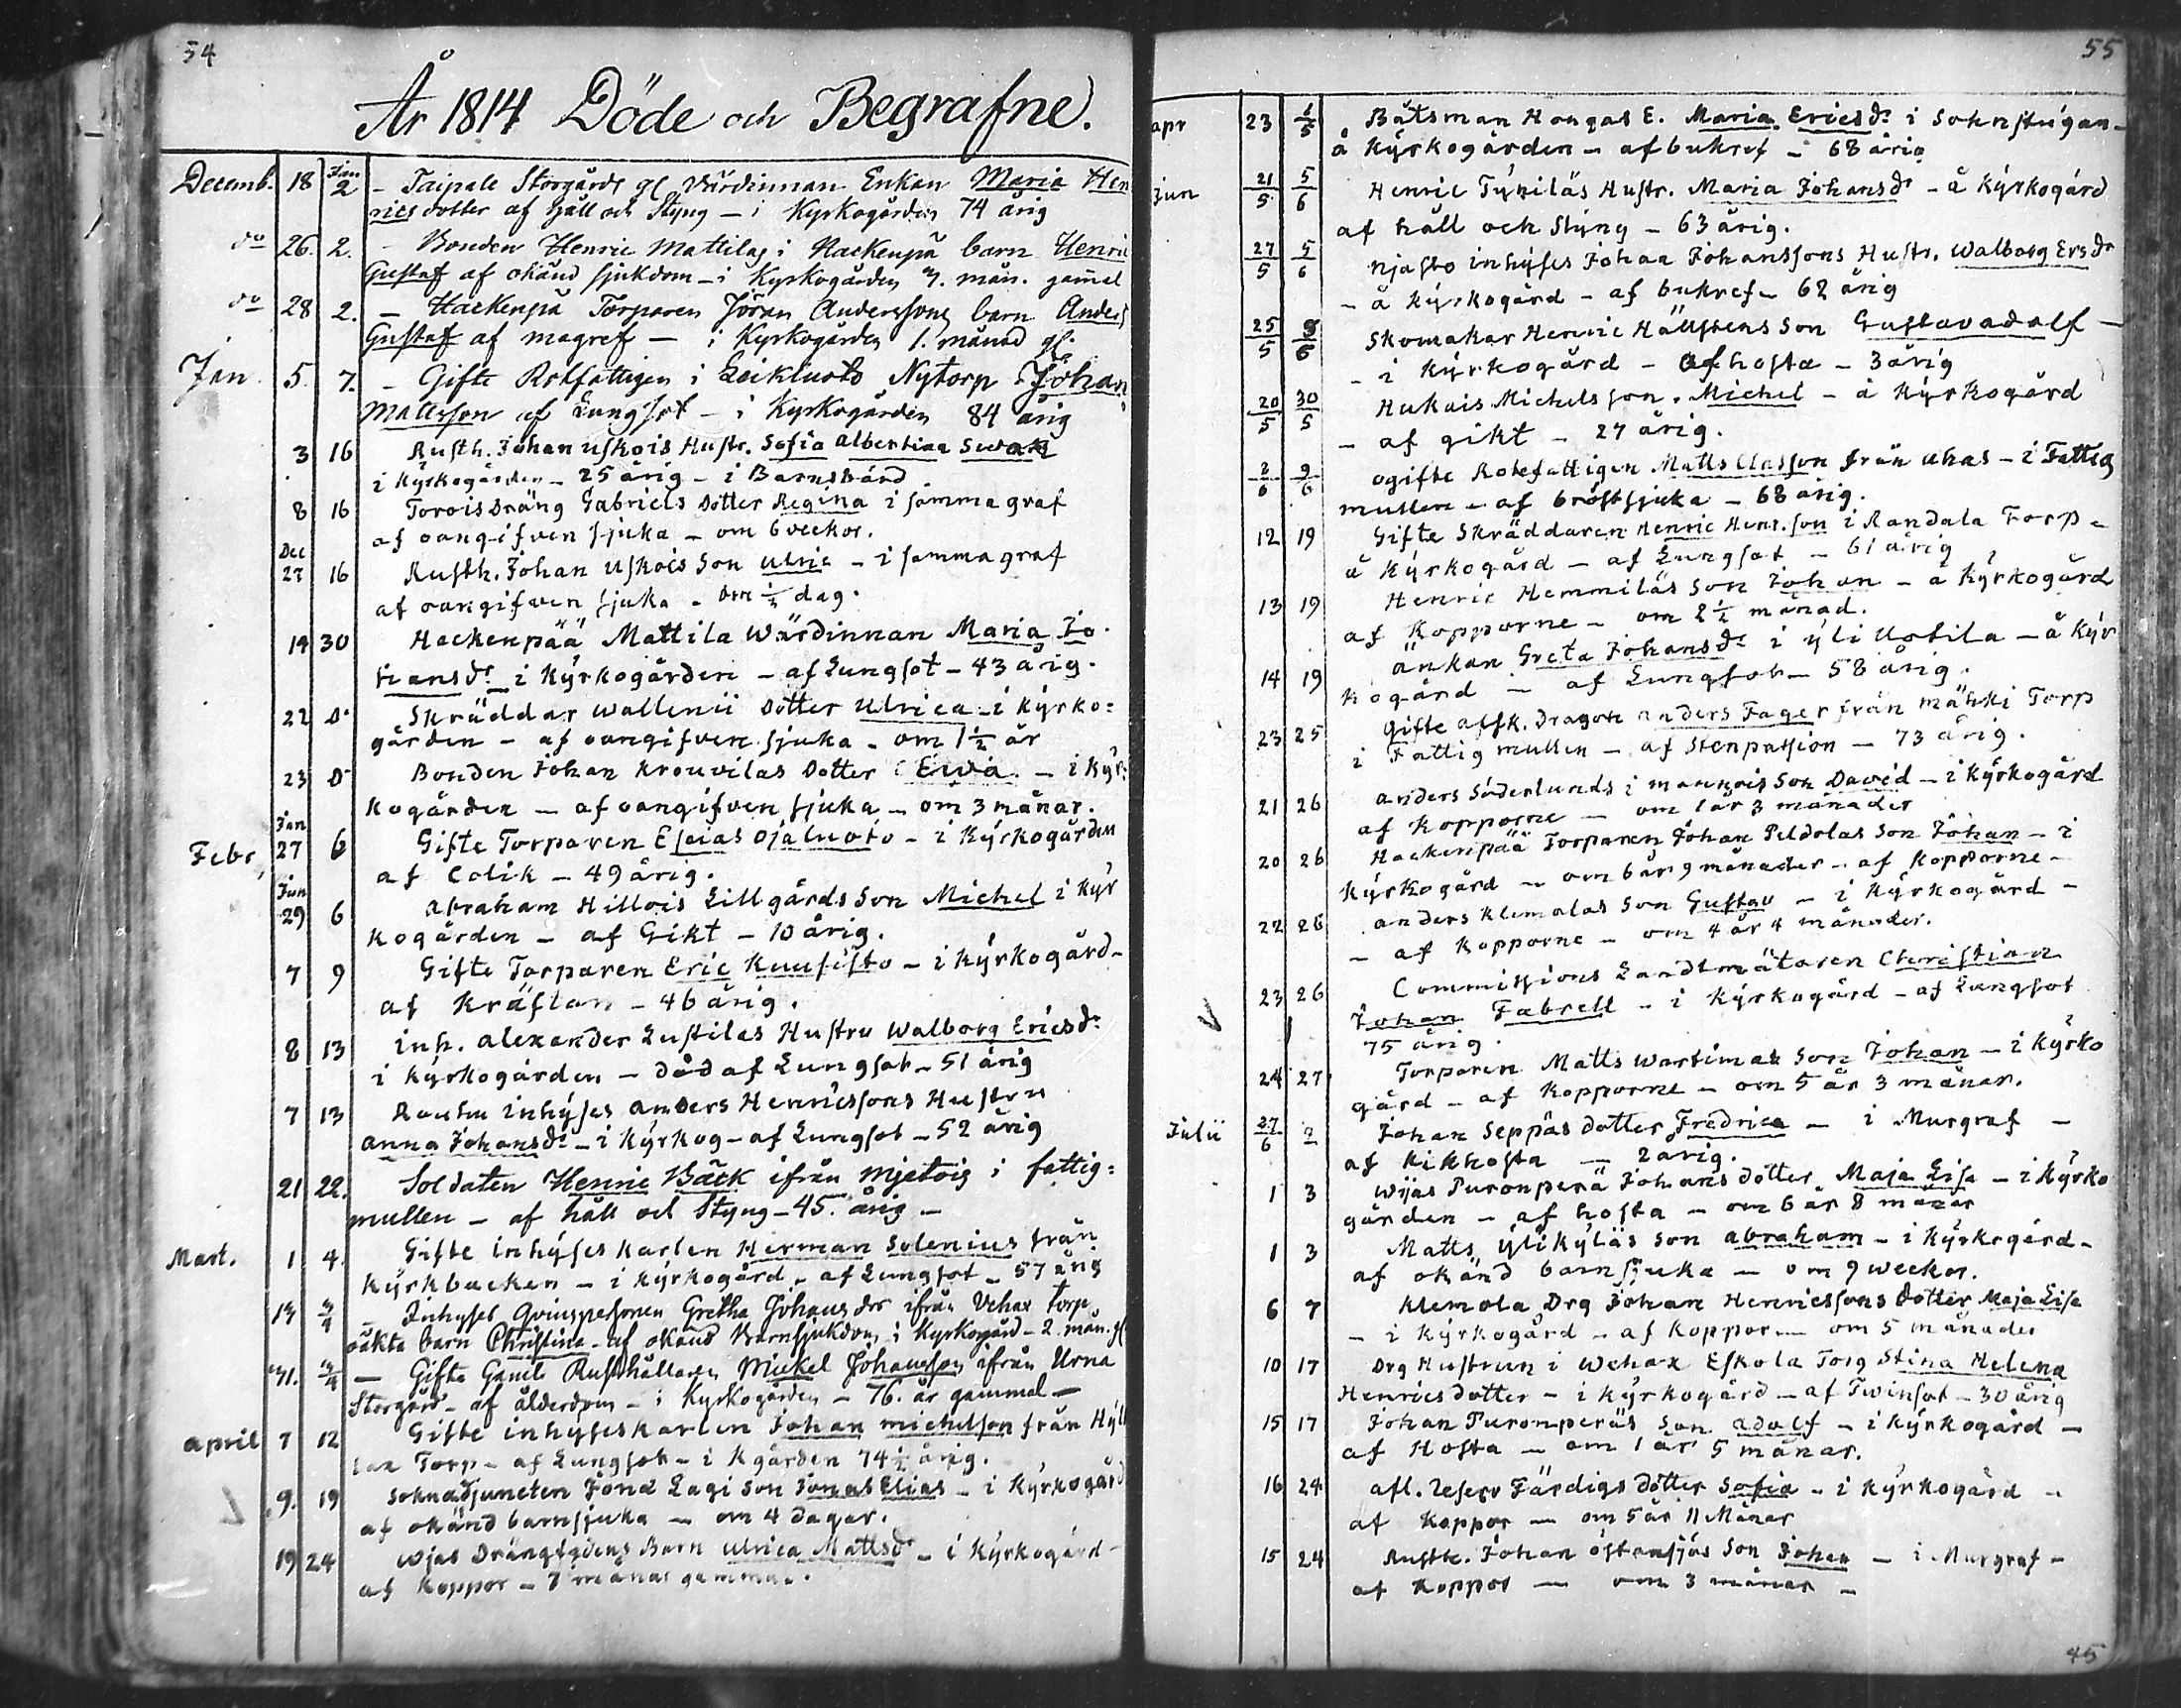 54
År 1814 Döde och Begrafne.
Decemb. 18 Jan 2 – Taipale Storgårds gl Värdinnan Enkan Maria Hen
ricsdotter af håll och Styng – i Kyrkogården 74 årig
do 26. 2. – Bonden Henric Mattilas i Hackenpä barn Henric
Gustaf af okänd sjukdom – i Kyrkogården 7. mån. gamel
do 28 2. – Hackenpä Torparen Jöran Anderssons barn Anders
Gustaf af magref – i Kyrkogården 1. månad gl.
Jan. 5. 7. – Gifte Rotfattigen i Leikluoto Nytorp Johan
Mattsson af Lungsot – i Kyrkogården 84 årig
3 16 Rusth. Johan Uskois Hustr. Sofia Albertina Swan
i Kyrkogården – 25 årig – i Barnsbörd
8 16 Torois Dräng Gabriels Dotter Regina i samma graf
af oangifven sjuka – om 6 veckor.
Dec 27 16 Rusth. Johan Uskois Son Ulric – i samma graf
af oangifven sjuka – om ½ dag.
19 30 Hackenpää Mattila Wärdinnan Maria Jo-
hansdr. i Kyrkogården – af Lungsot – 43 årig.
22 Do Skräddar Wallenii Dotter Ulrica – i Kyrko=
gården – af oangifven sjuka – om 1½ år
23 Do Bonden Johan Krouvilas Dotter Ewa – i Kyr=
kogården – af oangifven sjuka – om 3 månar.
Febr. Jan 27 6 Gifte Torparen Esaias Ojaluoto – i Kyrkogården
af Colik – 49 årig.
Jan 29 6 Abraham Hillois Lillgårds Son Michel i Kyr
kogården – af Gikt – 10 årig.
7 9 Gifte Torparen Eric Kuusisto – i Kyrkogård –
af Kräftan – 46 årig.
8 13 inh. Alexander Lustilas Hustru Walborg Ericsdr.
i Kyrkogården – död af Lungsot – 51 årig
7 13 inhyses Anders Henricssons Hustru
Anna Johansdr. – i Kyrkog – af Lungsot – 52 årig
21 22. Soldaten Henric Bäck ifrån Mjetois i fattig=
mullen – af håll och Styng – 45. årig –
Mart. 1 4. Gifte inhyses Karlen Herman Solenius från
Kyrkbacken – i Kyrkogård – af Lungsot – 57 årig
– Inhyses Qvinspersonen Gretha Johans dr ifrån Vehax torp
oäkta barn Christina – af okänd Barnsjukdom i Kyrkogård – 2 mån. gl
— Gifte Gamle Rusthållaren Mickel Johansson ifrån Urna
Storgård – af ålderdom – i Kyrkogården – 76. år gammal –
April 7 12 Gifte inhyseskarlen Johan Michelson från Hyll
lax Torp – af Lungsot – i Kgården 74½ årig.
9. 19 Soknadjuncten Jona Lagi Son Jonas Elias – i Kyrkogård
af okänd barnsjuka – om 4 Dagar.
19 24 Wjas Drängfgdens Barn Ulrica Mattsdr – i Kyrkogård –
af Koppor – 7 månar gammal.
55
Apr 23 1/5 Båtsman Hongas E. Maria Ericsdr. i Soknstugan –
å Kyrkogården – af bukref – 68 årig
Jun 21/5 5/6 Henric Tyniläs Hustr. Maria Johansdr – å Kyrkogård
af håll och Styng – 63 årig.
27/5 5/6 Njasto inhyses Johan Johanssons Hustr. Walborg Ersdr
– å Kyrkogård – af bukref – 62 årig
25/5 5/6 Skomakar Henric Hällstens Son Gustavadolf –
– i Kyrkogård – af hosta – 3 årig
20/5 30/5 Hukais Michelsson. Michel – å Kyrkogård
– af gikt – 27 årig.
2/6 9/6 ogifte Rotefattigen Matts Classon från Ahas – i Fattig
mullen – af bröstsjuka – 68 årig.
12 19 Gifte Skräddaren Henric Henr.son i Randala Torp –
å Kyrkogård – af Lungsot – 61 årig
13 19 Henric Hemmiläs Son Johan – å Kyrkogård
af Kopporne – om 2½ månad.
14 19 änkan Greta Johansdr i Yli Uotila – å Kyr
kogård – af Lungsot – 58 årig.
23 25 Gifte afsk. Dragon Anders Fager från Mähki Torp
i Fattigmullen – af Stenpassion – 73 årig.
21 26 Anders Söderlunds i Mannois Son David – i Kyrkogård
af Kopporne – om 1 år 3 månader
20 26 Hackenpää Torparen Johan Peldolas Son Johan – i
Kyrkogård – om 6 år 9 månader – af Kopporne –
22 26 Anders Klemolas Son Gustav – i Kyrkogård –
– af Kopporne – om 4 år 4 månader.
23 26 Commissions Landtmätaren Christian
Johan Fabrell – i Kyrkogård – af Lungsot
75 årig.
24 27 Torparen Matts Wartimax Son Johan – i Kyrko
gård – af Kopporne – om 5 år 3 månar.
Julii 27/6 2 Johan Seppäs Dotter Fredrica – i Murgraf –
af Kikhosta — 2 årig.
1 3 Wijas Puronperä Johans Dotter Maja Lisa – i Kyrko
gården – af hosta – om 6 år 8 månar
1 3 Matts Ylikyläs Son Abraham – i Kyrkogård –
af okänd barnsjuka – om 9 weckor.
6 7 Klemola Drg Johan Henricssons Dotter Maja Lisa
– i Kyrkogård – af Koppor – om 5 månader
10 17 Drg Hustrun i Wehax Eskola Torp Stina Helena
Henricsdotter – i Kyrkogård – af Twinsot – 30 årig
15 17 Johan Puronperäs Son Adolf – i Kyrkogård –
af Hosta – om 1 år 5 månar.
16 24 afl. Reserv Färdigs Dotter Sofia – i Kyrkogård –
af Koppor – om 5 år 11 Månar
15 24 Rusth. Johan Östensjös Son Johan – i Murgraf –
af Koppor – om 3 månar –
45